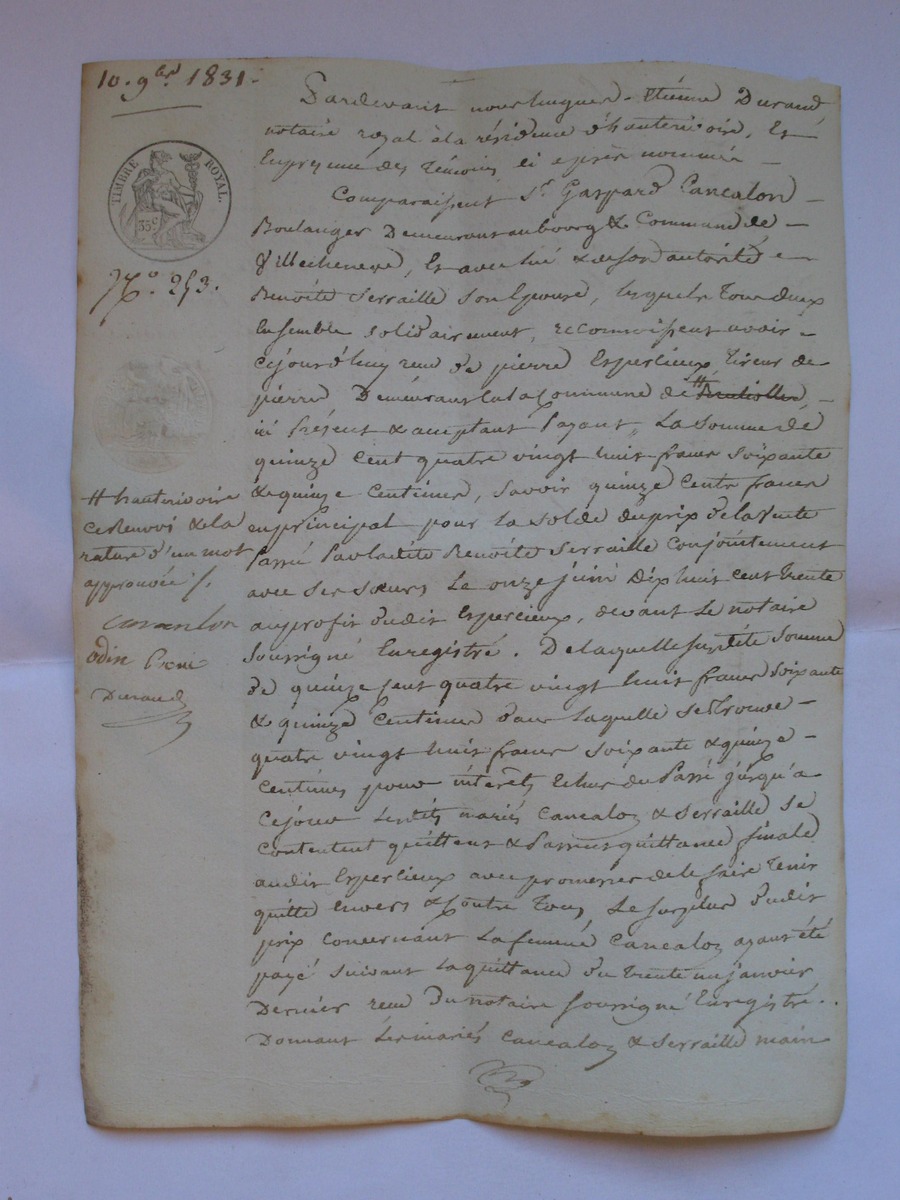 10. 9bre 1831.
TIMBRE ROYAL.
35 c
No. 253.
Pardevant nous hugues-Etienne Durand
notaire royal à la résidence d'hauterivoire, Et
En présence des témoins ci après nommés
Comparaissent Sr. Gaspard Cancalon
Boulanger Demeurant au bourg & Commune de
Villechenève, Et avec lui & de son autorité
Benoite Serraille son Epouse, lesquels Tous deux
Ensemble solidairement, reconnoissent avoir
cejourd'huy reçu de pierre Esperlieux tireur de
pierre Demeurant en la Commune de #
ici Présent & acceptant Payant, La Somme de
quinze cent quatre vingt huit francs Soixante
& quinze Centimes, Savoir quinze Cents francs
en principal pour la solde du prix de la Vente
Passé Par ladite Benoite Serraille Conjointement
avec Ses Sœurs Le onze juin Dix huit cent trente
au profit dudit Esperlieux, devant Le notaire
Soussigné Enregistré. De laquelle susdite Somme
de quinze cent quatre vingt huit francs Soixante
& quinze Centimes dans Laquelle se trouve
quatre vingt huit francs Soixante & quinze
Centimes pour intérêts Echus du Passé jusqu'a
Cejour Lesdits mariés Cancalon & Serraille Se
Contentent quittent & Passent quittance finale
audit Esperlieux avec promesses de le faire Tenir
quitte Envers & Contre Tous, Le Surplus dudit
prix Concernant La femme Cancalon ayant été
payé Suivant La quittance du trente un janvier
Dernier reçu Du notaire Soussigné Enregistré.
Donnant Les mariés Cancalon & Serraille main
# hauterivoire
ce renvoi & la
rature d'un mot
approuvée
Cancalon
odin
Durand